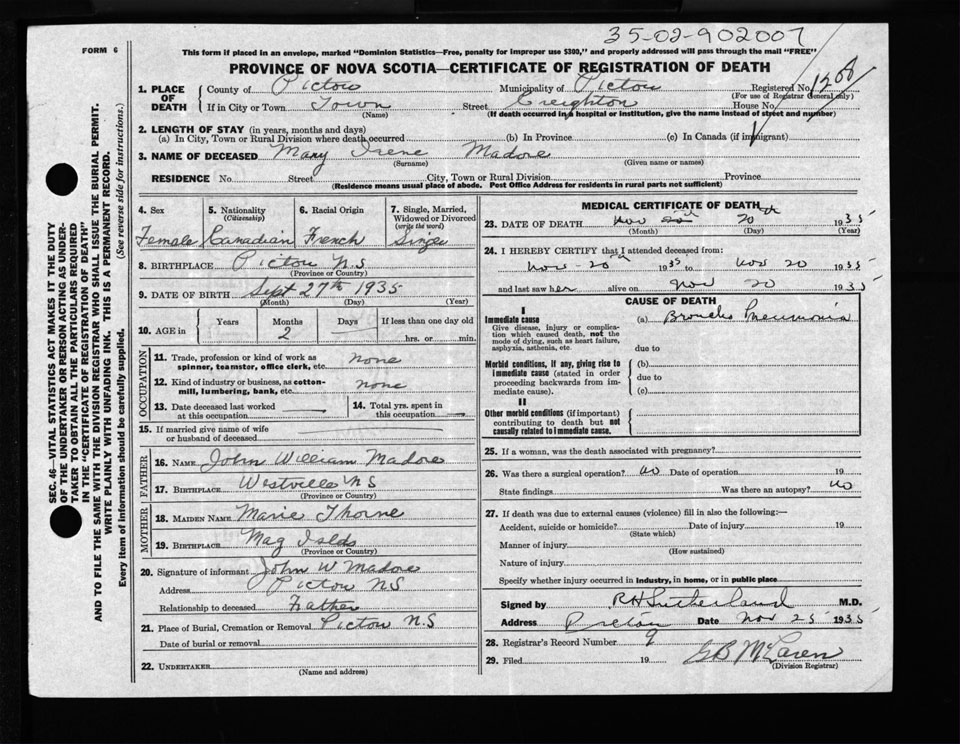 35-02-902007
FORM 6
This form if placed in an envelope, marked "Dominion Statistics—Free, penalty for improper use $300," and properly addressed will pass through the mail "FREE"
PROVINCE OF NOVA SCOTIA—CERTIFICATE OF REGISTRATION OF DEATH
1. PLACE OF DEATH
County of Pictou Municipality of Pictou Registered No. 1208
(For use of Registrar General only)
If in City or Town Town Street Creighton House No.
(Name) (If death occurred in a hospital or institution, give the name instead of street and number)
2. LENGTH OF STAY (in years, months and days)
(a) In City, Town or Rural Division where death occurred (b) In Province (c) In Canada (if immigrant)
3. NAME OF DECEASED Mary Irene Madore
(Surname) (Given name or names)
RESIDENCE No. Street City, Town or Rural Division Province
(Residence means usual place of abode. Post Office Address for residents in rural parts not sufficient)
4. Sex 5. Nationality (Citizenship) 6. Racial Origin 7. Single, Married, Widowed or Divorced (write the word)
Female Canadian French Single
8. BIRTHPLACE Pictou N.S
(Province or Country)
9. DATE OF BIRTH Sept 27th 1935
(Month) (Day) (Year)
10. AGE in Years Months Days If less than one day old
2 hrs. or min.
OCCUPATION
11. Trade, profession or kind of work as spinner, teamster, office clerk, etc. none
12. Kind of industry or business, as cotton-mill, lumbering, bank, etc. none
13. Date deceased last worked at this occupation
14. Total yrs. spent in this occupation
15. If married give name of wife or husband of deceased
FATHER
16. NAME John William Madore
17. BIRTHPLACE Westville NS
(Province or Country)
MOTHER
18. MAIDEN NAME Marie Thorne
19. BIRTHPLACE Mag Islds
(Province or Country)
20. Signature of informant John W Madore
Address Pictou NS
Relationship to deceased Father
21. Place of Burial, Cremation or Removal Pictou N.S
Date of burial or removal
22. UNDERTAKER
(Name and address)
MEDICAL CERTIFICATE OF DEATH
23. DATE OF DEATH Nov 20th 20th 1935
(Month) (Day) (Year)
24. I HEREBY CERTIFY that I attended deceased from:
Nov-20th 1935 to Nov 20 1935
and last saw her alive on Nov 20 1935
CAUSE OF DEATH
I
Immediate cause (a) Broncho Pneumonia
Give disease, injury or complication which caused death, not the mode of dying, such as heart failure, asphyxia, asthenia, etc. due to
Morbid conditions, if any, giving rise to immediate cause (stated in order proceeding backwards from immediate cause). (b) due to (c)
II
Other morbid conditions (if important) contributing to death but not causally related to immediate cause.
25. If a woman, was the death associated with pregnancy?
26. Was there a surgical operation? no Date of operation 19
State findings Was there an autopsy? no
27. If death was due to external causes (violence) fill in also the following:—
Accident, suicide or homicide? Date of injury 19
(State which)
Manner of injury
(How sustained)
Nature of injury
Specify whether injury occurred in industry, in home, or in public place
Signed by RH Sutherland M.D.
Address Pictou Date Nov 25 1935
28. Registrar's Record Number 9
29. Filed 19 GB McLaren
(Division Registrar)
SEC. 46—VITAL STATISTICS ACT MAKES IT THE DUTY
OF THE UNDERTAKER OR PERSON ACTING AS UNDER-
TAKER TO OBTAIN ALL THE PARTICULARS REQUIRED
IN THE "CERTIFICATE OF REGISTRATION OF DEATH"
AND TO FILE THE SAME WITH THE DIVISION REGISTRAR WHO SHALL ISSUE THE BURIAL PERMIT.
WRITE PLAINLY WITH UNFADING INK. THIS IS A PERMANENT RECORD.
Every item of information should be carefully supplied. (See reverse side for instructions.)